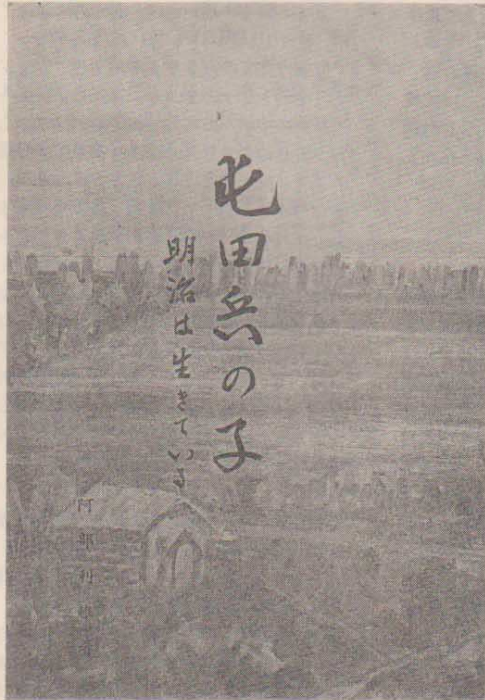 屯田兵の子
明治は生きている
阿部利雄著